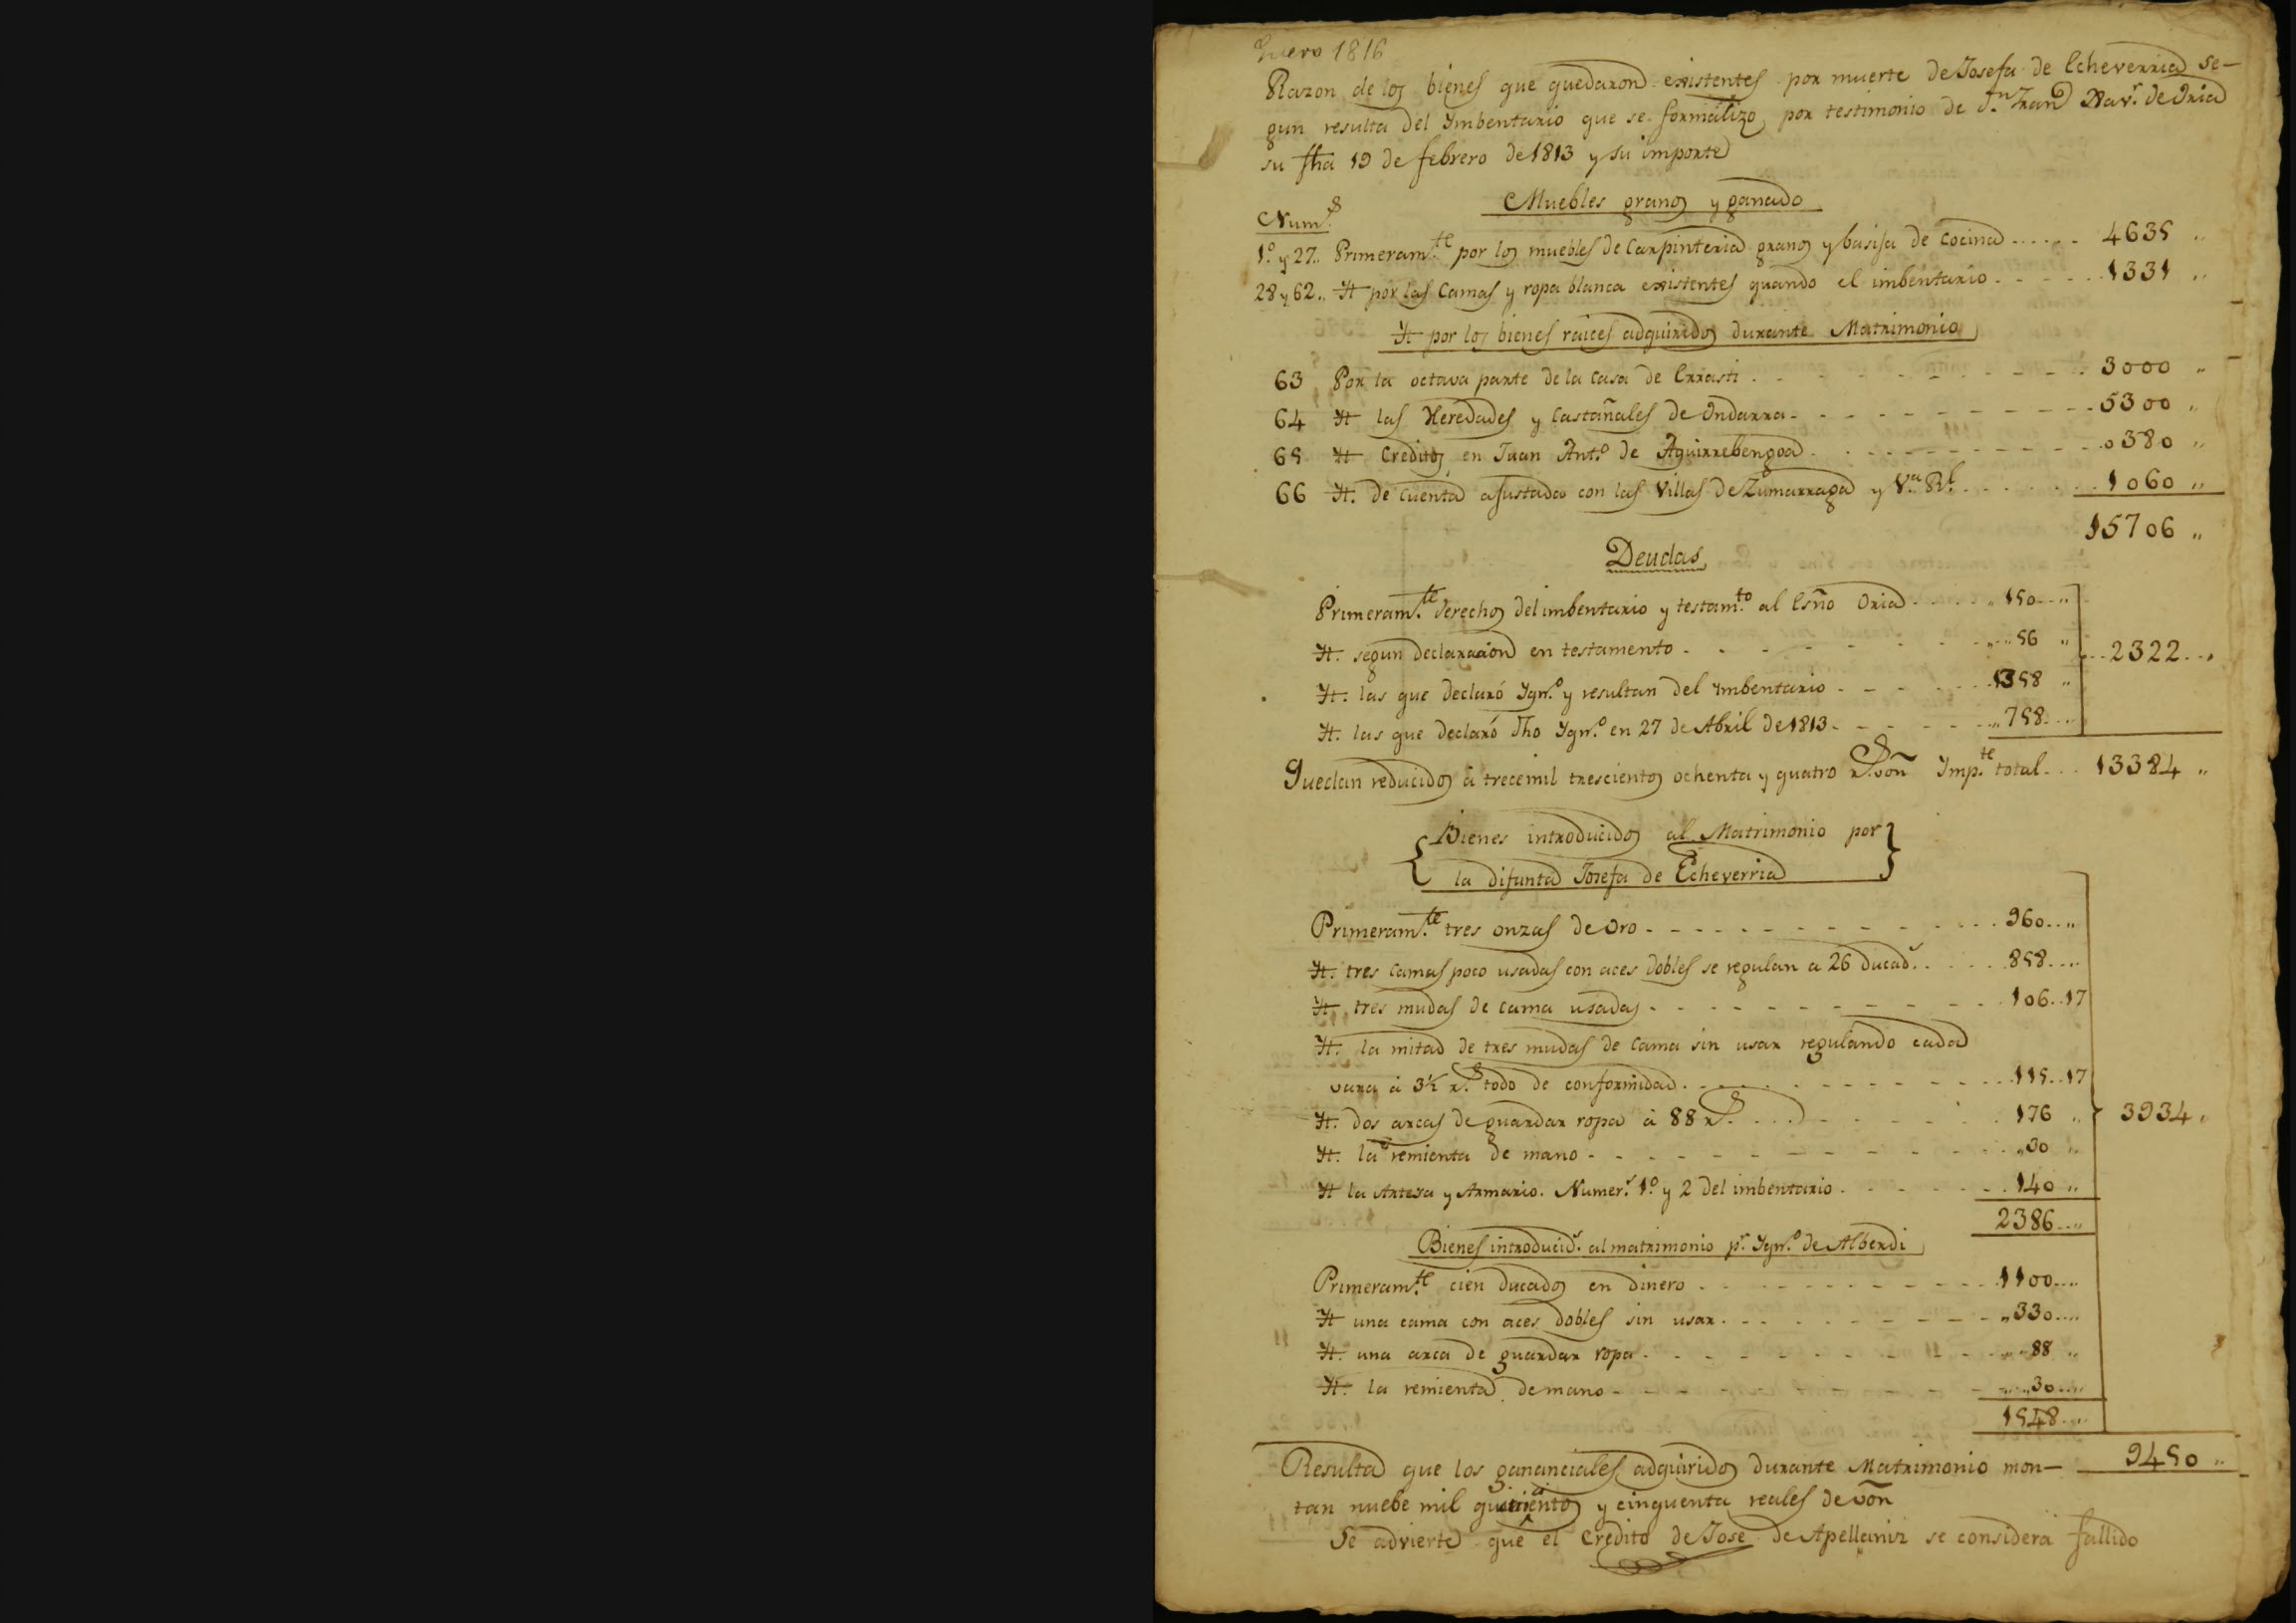 Enero 1816
Razon de los bienes que quedaron existentes por muerte de Josefa de Echeverria se-
gun resulta del Ymbentario que se formalizo por testimonio de Dn Fran Xavr. de Oria
su fha 19 de febrero de 1813 y su importe
Muebles granos y ganado
Nums.
1º y 27.. Primeramte por los muebles de Carpinteria granos y basija de cocina ...... 4635 ..
28 y 62.. Yt por las Camas y ropa blanca existentes quando el imbentario - - - - - 1331 ..
Yt por los bienes raices adquiridos durante Matrimonio
63 Por la octava parte de la casa de Errasti - - - - - - - - - - - 3000 ..
64 Yt las Heredades y Castañales de Ondarra - - - - - - - - - - - 5300 ..
65 Yt Creditos en Juan Antº de Aguirrebengoa - - - - - - - - - - 0380 ..
66 Yt. de cuenta ajustada con las Villas de Zumarraga y Va. Rl. - - - - - 1060 ..
15706 ..
Deudas
Primeramte. derechos del imbentario y testamto. al Esño Oria - - - - .. 150 ....
Yt. segun declaracion en testamento - - - - - - - - - .... 56 ..
... 2322 ...
Yt. las que declaró Ygnº y resultan del Ymbentario - - - - - - 1358 ..
Yt. las que declaró dho Ygnº en 27 de Abril de 1813 - - - - - .. 758 ....
Quedan reducidos à trece mil trescientos ochenta y quatro rs. von Ympte total ... 13384 ..
{ Bienes introducidos al Matrimonio por }
la difunta Josefa de Echeverria
Primeramte. tres onzas de Oro - - - - - - - - - - - - 960 ....
Yt. tres camas poco usadas con aces dobles se regulan a 26 ducads. - - - - 858 ....
Yt tres mudas de cama usadas - - - - - - - - - - - - 106..17
Yt. la mitad de tres mudas de cama sin usar regulando cada
vara à 3½ rs. todo de conformidad - - - - - - - - - - - 115..17
Yt. dos arcas de guardar ropa à 88 rs. - - - - - - - - 176 ..
3934 ..
Yt. la remienta de mano - - - - - - - - - - - - - .. 30 ..
Yt la Artesa y Armario. Numers. 1º y 2 del imbentario - - - - - - 140 ..
2386 ....
Bienes introducids. al matrimonio pr. Ygnº de Alberdi
Primeramte cien ducados en dinero - - - - - - - - - - - 1100 ....
Yt una cama con aces dobles sin usar - - - - - - - - - - .. 330 ....
Yt. una arca de guardar ropa - - - - - - - - - - - - .... 88 ..
Yt. la remienta de mano - - - - - - - - - - - - .... 30 ....
1548 ...
Resulta que los gananciales adquiridos durante Matrimonio mon- 9450 ..
tan nuebe mil y cinquenta reales de von
Se advierte que el Credito de Jose de Apellaniz se considera fallido